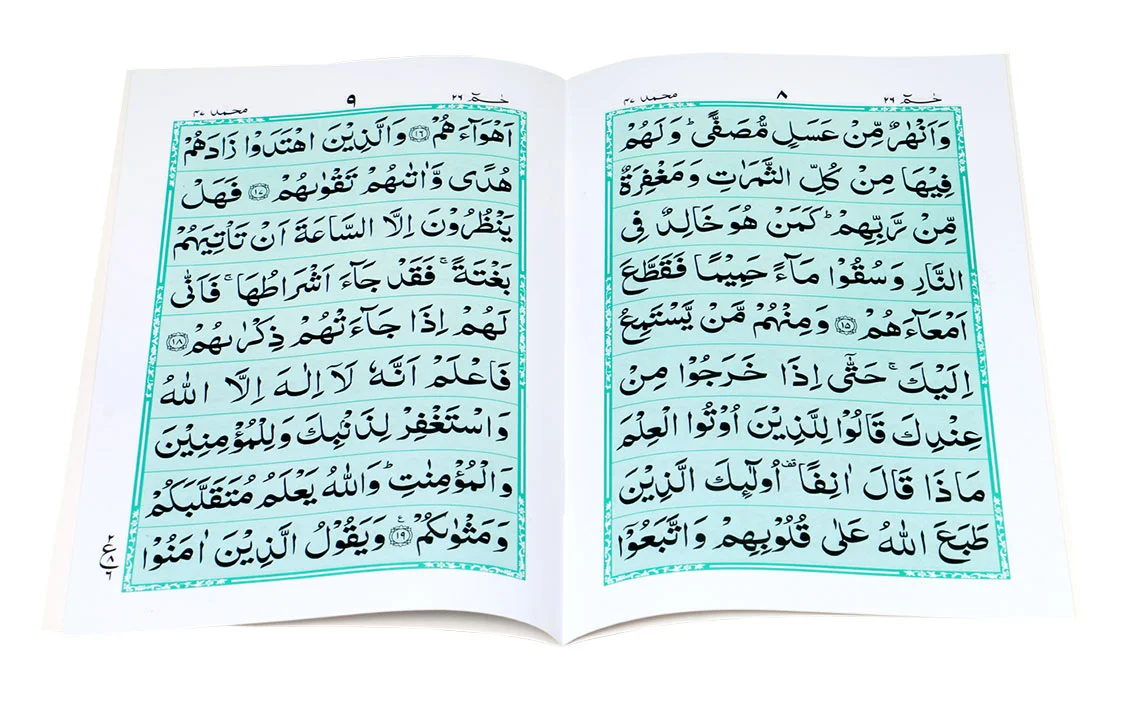 حٰمٓ ٢٦
٨
محمد ٤٧
وَاَنْهٰرٌ مِّنْ عَسَلٍ مُّصَفًّى ؕ وَلَهُمْ
فِيْهَا مِنْ كُلِّ الثَّمَرٰتِ وَمَغْفِرَةٌ
مِّنْ رَّبِّهِمْ ؕ كَمَنْ هُوَ خَالِدٌ فِى
النَّارِ وَسُقُوْا مَآءً حَمِيْمًا فَقَطَّعَ
اَمْعَآءَهُمْ ﴿۱۵﴾ وَمِنْهُمْ مَّنْ يَّسْتَمِعُ
اِلَيْكَ ۚ حَتّٰٓى اِذَا خَرَجُوْا مِنْ
عِنْدِكَ قَالُوْا لِلَّذِيْنَ اُوْتُوا الْعِلْمَ
مَاذَا قَالَ اٰنِفًا ۫ اُولٰٓئِكَ الَّذِيْنَ
طَبَعَ اللّٰهُ عَلٰى قُلُوْبِهِمْ وَاتَّبَعُوْۤا
حٰمٓ ٢٦
٩
محمد ٤٧
اَهْوَآءَهُمْ ﴿۱۶﴾ وَالَّذِيْنَ اهْتَدَوْا زَادَهُمْ
هُدًى وَّاٰتٰىهُمْ تَقْوٰىهُمْ ﴿۱۷﴾ فَهَلْ
يَنْظُرُوْنَ اِلَّا السَّاعَةَ اَنْ تَاْتِيَهُمْ
بَغْتَةً ۚ فَقَدْ جَآءَ اَشْرَاطُهَا ۚ فَاَنّٰى
لَهُمْ اِذَا جَآءَتْهُمْ ذِكْرٰىهُمْ ﴿۱۸﴾
فَاعْلَمْ اَنَّهٗ لَاۤ اِلٰهَ اِلَّا اللّٰهُ
وَاسْتَغْفِرْ لِذَنْۢبِكَ وَلِلْمُؤْمِنِيْنَ
وَالْمُؤْمِنٰتِ ؕ وَاللّٰهُ يَعْلَمُ مُتَقَلَّبَكُمْ
وَمَثْوٰىكُمْ ﴿۱۹﴾ ع وَيَقُوْلُ الَّذِيْنَ اٰمَنُوْا
٢
ع
٨
٦